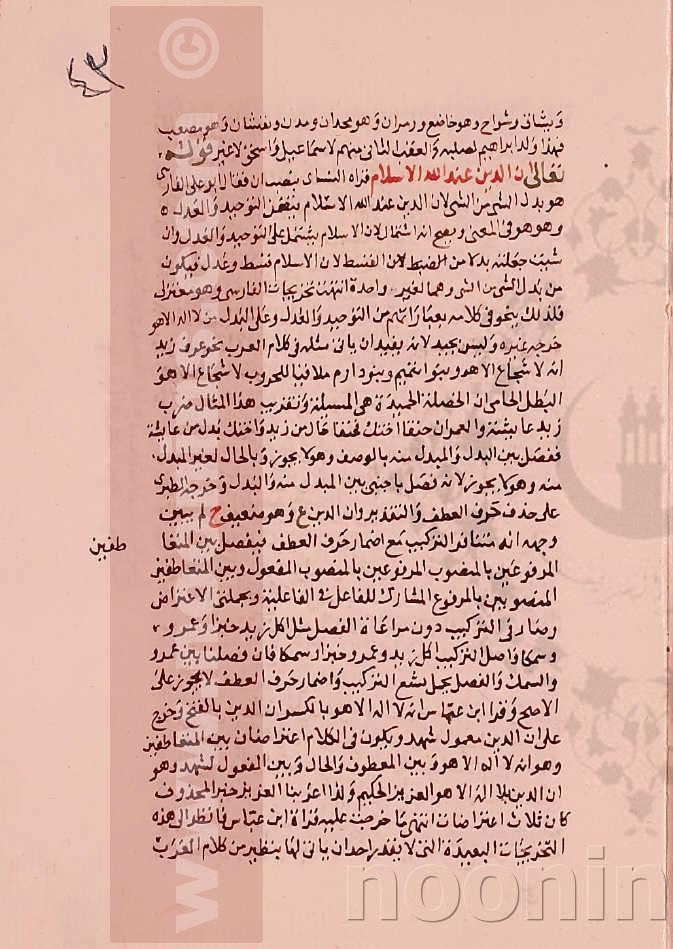 ٤٣
وبشاق وشواح وهو خاضع ورمران وهو محدان ومدن ونفشان وهو مصعب
فهذا ولد ابراهيم لصلبه والعقب الثاني منهم لاسماعيل واسحق لا غير قوله
تعالى ان الدين عند الله الاسلام قراه الكساي بنصب ان فقال ابو على الفارسي
هو بدل الشي من الشي لان الدين عند الله الاسلام يتضمن التوحيد والعدل
وهو هو في المعنى ويصح انه اشتمال لان الاسلام يشتمل على التوحيد والعدل وان
شيت جعلته بدلا من القسط لان القسط لان الاسلام قسط وعدل فيكون
من بدل الشي من الشي وهما لعين واحدة انتهت تخريجات الفارسي وهو معتزلي
فلذلك ينحو في كلامه بعباراتهم من التوحيد والعدل وعلى البدل من لا اله الا هو
خرجه غيره وليس بجيد لانه يفيد ان ياتي مثله في كلام العرب نحو عرف زيد
انه لا شجاع الا هو وبنوا تميم وبنو دارم ملاقيا للحروب لا شجاع الا هو
البطل الحامي ان الخصلة الحميدة هي البسالة وتقريب هذا المثال ضرب
زيد عايشة والعمران حنقا اختك فحنقا حال من زيد واختك بدل من عايشة
ففصل بين البدل والمبدل منه بالوصف وهو لا يجوز وبالحال لغير المبدل
منه وهو لا يجوز لانه فصل باجنبي بين المبدل منه والبدل وخرجه الطبري
على حذف حرف العطف والتقدير وان الدين ع وهو ضعيف ح لم يبين
وجهه انه متنافر التركيب مع اضمار حرف العطف فيفصل بين المتعا
طفين
المرفوعين بالمنصوب المرفوعين بالمنصوب المفعول وبين المتعاطفين
المنصوبين بالمرفوع المشارك للفاعل في الفاعلية وبجملتي الاعتراض
وصار في التركيب دون مراعاة الفصل مثل اكل زيد خبزا وعمرو
وسمكا واصل التركيب اكل زيد وعمرو خبزا وسمكا فان فصلنا بين عمرو
والسمك والفصل يحل بشع التركيب واضمار حرف العطف لا يجوز على
الاصح وقرا ابن عباس انه لا اله الا هو بالكسر ان الدين بالفتح وخرج
على ان الدين معمول شهد ويكون في الكلام اعتراضان بين المتعاطفين
وهو انه لا اله الا هو وبين المعطوف والحال وبين المفعول لشهد وهو
ان الدين لا اله الا هو العزيز الحكيم واذا اعربنا العزيز خبر المحذوف
كان ثلاث اعتراضات انتهى ما خرجت عليه قراة ابن عباس فانظر الى هذه
التخريجات البعيدة التي لا يقدر احد ان ياتي لها بنظير من كلام العرب
noonin